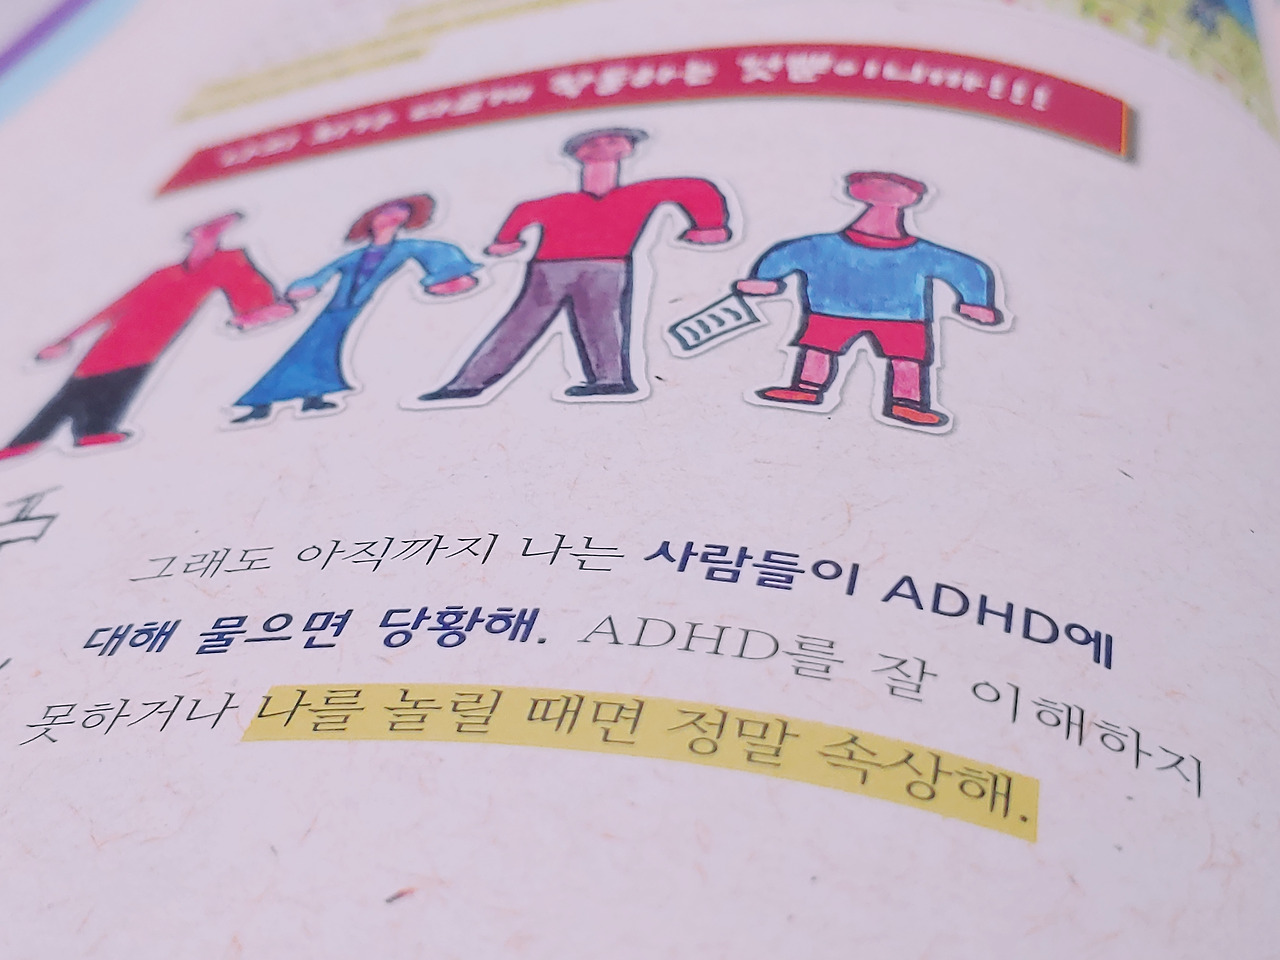 다르게 작동하는 것뿐이니까!!!
그래도 아직까지 나는 사람들이 ADHD에
대해 물으면 당황해. ADHD를 잘 이해하지
못하거나 나를 놀릴 때면 정말 속상해.